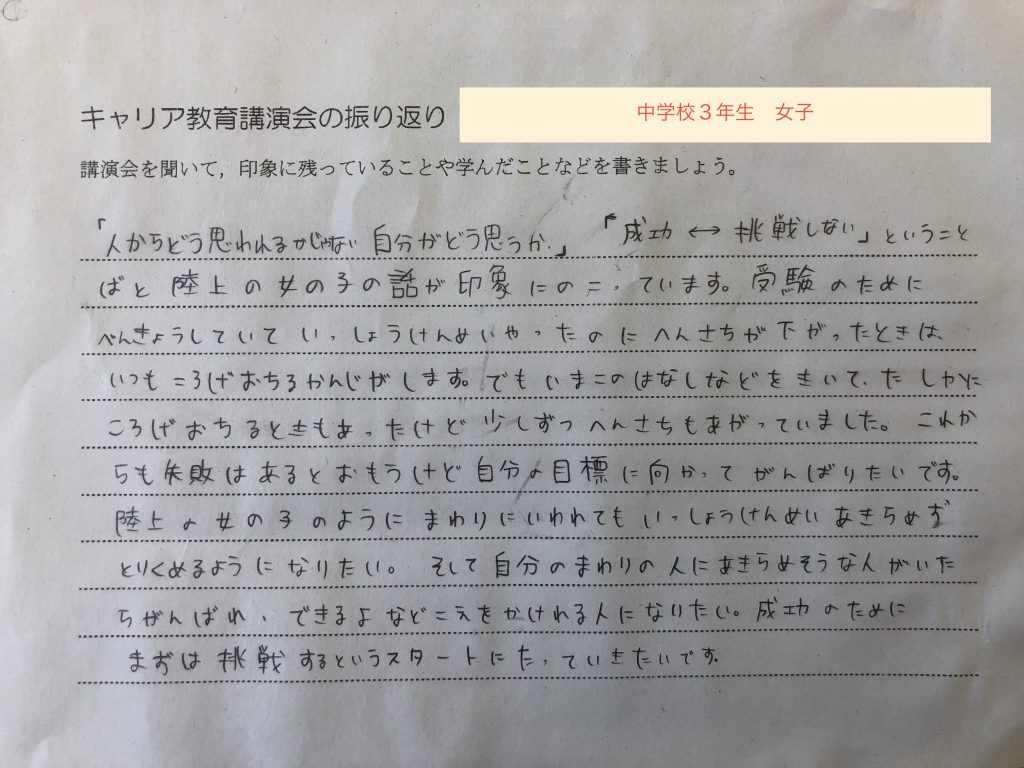 キャリア教育講演会の振り返り
中学校3年生　女子
講演会を聞いて，印象に残っていることや学んだことなどを書きましょう。
「人からどう思われるかじゃない 自分がどう思うか.」 「成功 ↔ 挑戦しない」ということ
ばと 陸上の女の子の話が印象にのこっています。受験のために
べんきょうしていて いっしょうけんめいやったのに へんさちが下がったときは、
いつもころげおちるかんじがします。でもいまこのはなしなどをきいて、たしかに
ころげおちるときもあったけど少しずつへんさちもあがっていました。これか
らも失敗はあるとおもうけど自分の目標に向かってがんばりたいです。
陸上の女の子のようにまわりにいわれてもいっしょうけんめいあきらめず
とりくめるようになりたい。そして自分のまわりの人にあきらめそうな人がいた
らがんばれ、できるよなどこえをかけれる人になりたい。成功のために
まずは挑戦するというスタートにたっていきたいです。